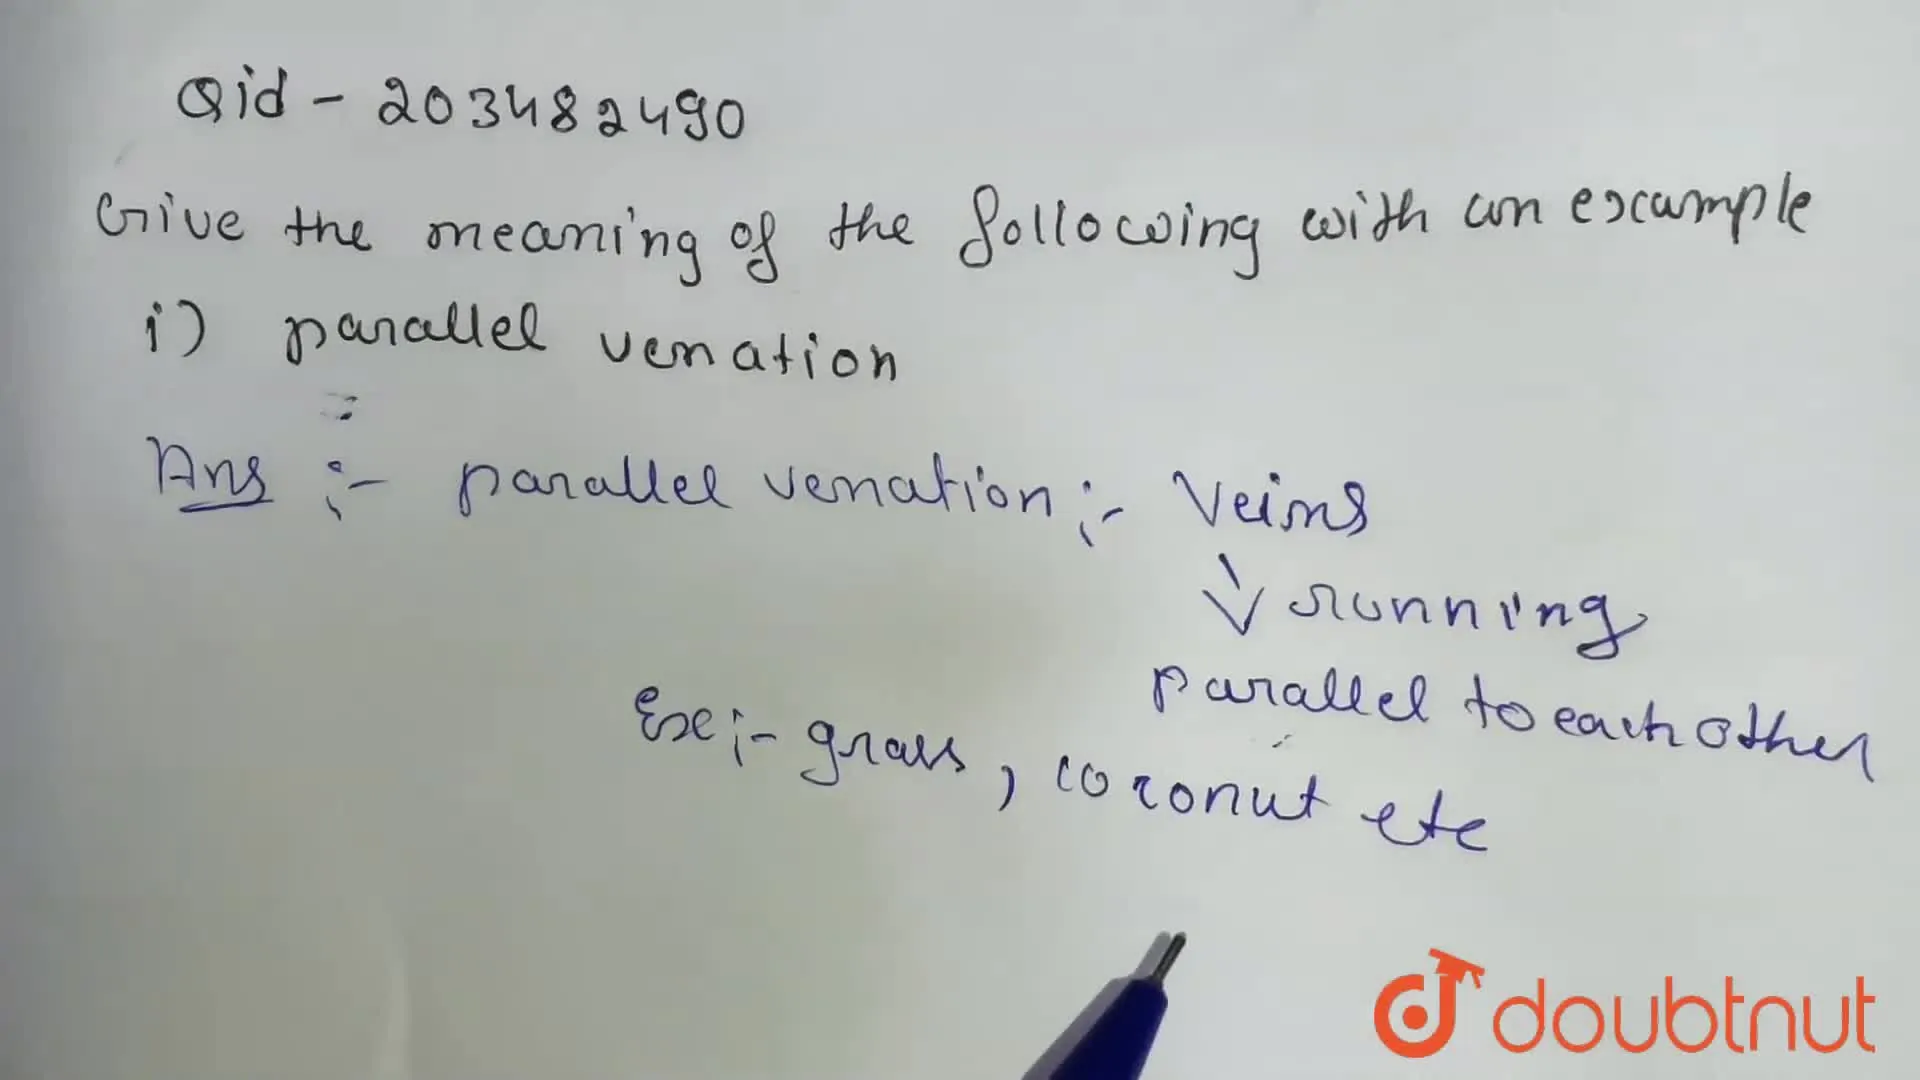 Qid - 203482490
Give the meaning of the following with an example
i) parallel venation
Ans :- parallel venation :- Veins
running
parallel to each other
Ex :- grass, coconut etc
doubtnut